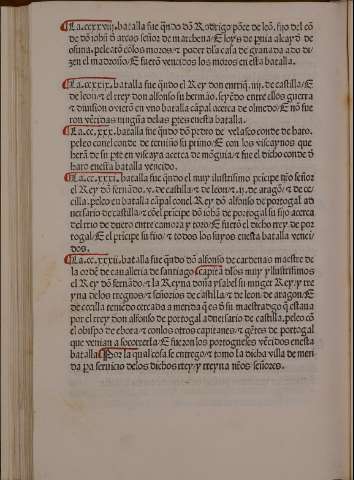 ¶La.ccxxviij. batalla fue qñdo dõ Rodrigo põce de leõ. fijo del cõ
de dõ iohã de arcos señor de marchena/E loys de pnia alcayd̃ de
osuna. peleatõ cõlos moros/⁊ poder dla casa de granada ado di-
zen el madroño/E fuerõ vencidos los moros en esta batalla.
¶La.ccxxix. batalla fue qñdo el Rey don enrriq̃.iiij. de castilla/E
de leon/⁊ el rrey don alfonso su hermão. seyẽdo entre ellos guerra
⁊ diuision ouierõ en vno batalla cãpal acerca de olmedo/E nõ fue
ron vẽcidas ninguña delas ptes en esta batalla.
¶La.cc.xxx. batalla fue qñdo dõ pedro de velasco conde de haro.
peleo conel conde de treuiño su primo/E con los viscaynos que
herã de su pte en viscaya acerca de mõguia/⁊ fue el dicho conde d̃
haro en esta batalla vencido.
¶La.cc.xxxi. batalla fue qñdo el muy ilustrissimo prícipe nrõ señor
el Rey dõ fernãdo.v. de castilla/⁊ de leon/⁊.ij. de aragõ/⁊ de ce-
cilia. peleo en batalla cãpal conel Rey dõ alfonso de portogal ad
uersario de castilla/⁊ cõel prícipe dõ iohã de portogal su fijo acerca
del rrio de duero entre çamora y toro/E fuerõ el dicho rrey de por
togal/E el prícipe su fijo/⁊ todos los suyos en esta batalla venci-
dos.
¶La.cc.xxxij. batalla fue qñdo dõ alfonso de cardenas maestre de
la ordẽ de caualleria de santiago/capitã dlos muy yllustrissimos
el Rey dõ fernãdo/⁊ la Reyna doña ysabel su muger Rey/y rre
yna delos rregnos/⁊ señorios de castilla/⁊ de leon/de aragon/E
de cecilia teniẽdo cercada a merida q̃ es õ su maestradgo q̃ estaua
por el rrey don alfonso de portogal aduersario de castilla. peleo cõ
el obispo de ebora/⁊ con los otros capitanes/⁊ gẽtes de portogal
que venian a socorrerla/E fueron los portogueses vẽcidos en esta
batalla ¶Por la qual cosa se entrego/⁊ tomo la dicha villa de meri
da pa seruicio delos dichos rrey/y rreyna nr̃os señores.